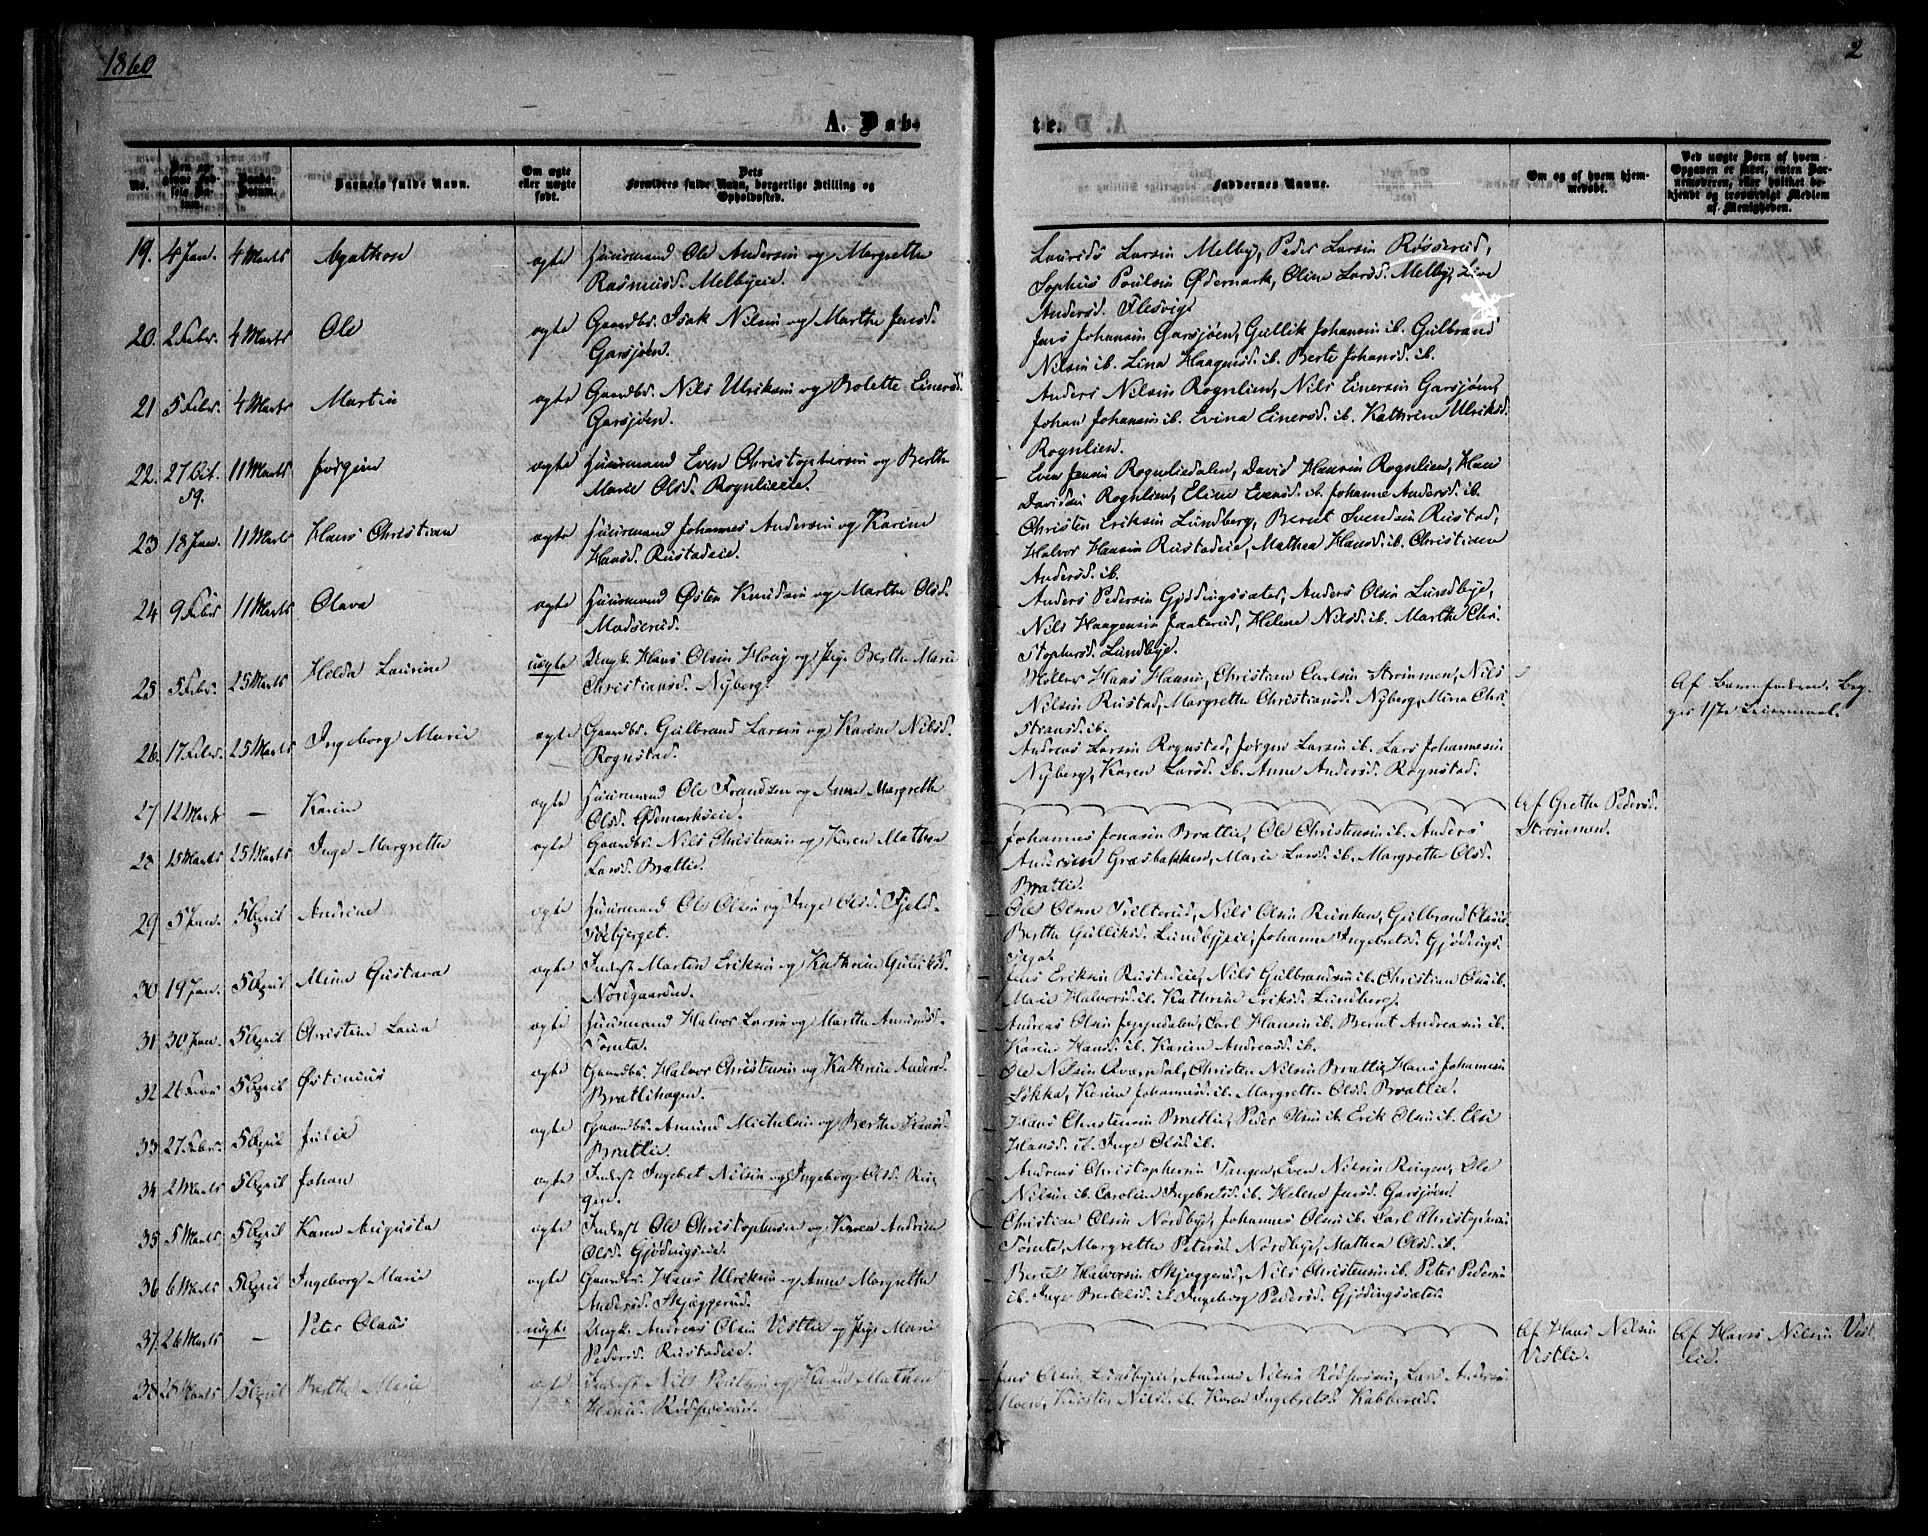 1860
2
A. Døb-
te.
No.
Den op-
givne Fød-
sels Da-
tum.
Daabs-
Datum.
Barnets fulde Navn.
Om ægte
eller uægte
født.
Dets
Forældres fulde Navn, borgerlige Stilling og
Opholdssted.
Faddernes Navne.
Om og af hvem hjem-
medøbt.
Ved uægte Børn af hvem
Opgaven er skeet, enten Bar-
nemoderen, eller hvilket be-
kjendt og troværdigt Medlem
af Menigheden.
19. 4 Jan. 4 Marts Agathon ægte Huusmand Ole Andersen og Margrethe
Rasmusd. Melbyeie.
Laurids Larsen Melby, Peder Larsen Røsserud,
Sophus Poulsen Ødemark, Oline Larsd. Melby, Live
Andersd. Flesvig.
20. 2 Febr. 4 Marts Ole ægte Gaardbr. Isak Nilsen og Marthe Jensd.
Garsjøen.
Jens Johansen Garsjøen, Gullik Johansen ib. Gulbrand
Nilsen ib. Lina Haagensd. ib. Berte Johansd. ib.
21 5 Febr. 4 Marts Martin ægte Gaardbr. Nils Ulriksen og Bolette Einersd.
Garsjøen.
Anders Nilsen Rognlien, Nils Einersen Garsjøen,
Johan Johansen ib. Evina Einersd. ib. Kathrine Ulriksd.
Rognlien.
22. 27 Oct. 59. 11 Marts Jørgen ægte Huusmand Even Christophersen og Berthe
Marie Olsd. Rognlieeie.
Even Jensen Rognliedalen, David Hansen Rognlien, Hans
Davidsen Rognlien, Eline Evensd. ib. Johanne Andersd. ib.
23 18 Jan. 11 Marts Hans Christian ægte Huusmand Johannes Andersen og Karine
Hansd. Rustadeie.
Christen Eriksen Lundberg, Bernt Svendsen Rustad,
Halvor Hansen Rustadeie, Mathea Hansd. ib. Christiane
Andersd. ib.
24 9 Febr 11 Marts Olava ægte Huusmand Østen Knudsen og Marthe Olsd.
Madserud.
Anders Pedersen Gjødingssæter, Anders Olsen Lundbye,
Nils Haagensen Jaaterud, Helene Nilsd. ib. Marthe Chri-
stophersd. Lundbye.
25 5 Febr. 25 Marts Hilda Laurine uægte Ungk. Hans Olsen Hoeig og Pige Berthe Marie
Christiansd. Nyberg.
Møller Hans Hansen, Christian Carlsen Strømmen, Nils
Nilsen Rustad, Margrethe Christiansd. Nyberg, Mina Chri-
stiansd. ib.
Af Barnefaderen. Beg-
ges 1ste Leiermaal.
26. 17 Febr. 25 Marts Ingeborg Marie ægte Gaardbr. Gulbrand Larsen og Karine Nilsd.
Rognstad.
Andreas Larsen Rognstad, Jørgen Larsen ib. Lars Johannesen
Nyberg, Karen Larsd. ib. Anne Andersd. Rognstad.
27 12 Marts — Karine ægte Huusmand Ole Frandsen og Anne Margrethe
Olsd. Ødemarkseie.
Af Grethe Pedersd.
Strømmen.
28 15 Marts 25 Marts Inge Margrethe ægte Gaardbr. Nils Christensen og Karen Mathea
Larsd. Brattlie.
Johannes Jonasen Brattlie, Ole Christensen ib. Anders
Andersen Græsbakken, Marie Larsd. ib. Margrethe Olsd.
Brattlie.
29 5 Jan. 5 April Andrine ægte Huusmand Ole Olsen og Inge Olsd. Fjeld-
sæbjerget.
Ole Olsen Tvetterud, Nils Olsen Runhen, Gulbrand Olsen
Berthe Gulliksd. Lundbyeie, Johanne Ingebretsd. Gjødings-
30 19 Jan. 5 April Mina Gustava ægte Inderst Martin Eriksen og Kathrine Gulliksd.
Nordgaarden.
Jens Eriksen Rustadeie, Nils Gulbrandsen ib. Christian Olsen ib.
Marie Halvorsd. ib. Kathrine Eriksd. Lundberg.
31 30 Jan. 5 April Christine Laura ægte Huusmand Halvor Larsen og Marthe Amundsd.
Tømta.
Andreas Olsen Jeppedalen, Carl Hansen ib. Bernt Andreasen ib.
Karen Hansd. ib. Karine Andreasd. ib.
32 26 Febr 5 April Østenius ægte Gaardbr. Halvor Christensen og Kathrine Andersd.
Brattlihagen.
Ole Nilsen Aaserdal, Christen Nilsen Brattlie, Hans Johannesen
Løkka, Karine Johannesd. ib. Margrethe Olsd. Brattlie.
33 27 Febr. 5 April Julie ægte Gaardbr. Amund Michelsen og Berthe Hansd.
Brattlie.
Hans Christensen Brattlie, Peder Olsen ib. Erik Olsen ib. Else
Hansd. ib. Inge Olsd. ib.
34 2 Marts 5 April Johan ægte Inderst Ingebret Nilsen og Ingeborg Olsd. Rin-
gen.
Andreas Christophersen Tangen, Even Nilsen Ringen, Ole
Nilsen ib. Caroline Ingebretsd. ib. Helene Jensd. Garsjøen.
35 5 Marts 5 April Karen Augusta ægte Inderst Ole Christophersen og Karen Andrine
Olsd. Gjødingseie.
Christian Olsen Nordby, Johannes Olsen ib. Carl Christophersen
Tømte, Margrethe Petersd. Nordbye, Mathea Olsd. ib.
36 6 Marts 5 April Ingeborg Marie ægte Gaardbr. Hans Ulriksen og Anne Margrethe
Andersd. Skjæggerud.
Bertel Halvorsen Skjæggerud, Nils Christensen ib. Peter Pedersen
ib. Inge Bertelsd. ib. Ingeborg Pedersd. Gjødingssæter.
37. 26 Marts — Peter Olaus uægte Ungk. Andreas Olsen Vestlie og Pige Marie
Pedersd. Rustadeie.
Af Hans Nilsen
Vestlie.
Af Hans Nilsen Vest-
lie.
38 28 Marts 15 April Berthe Marie ægte Inderst Nils Poulsen og Karen Mathea
Hansd. Rødfossen.
Jens Olsen Lundbyeie, Andreas Nilsen Rødfossen, Lars Andersen
Moen, Kirsten Nilsd. ib. Karen Ingebretsd. Kabberud.